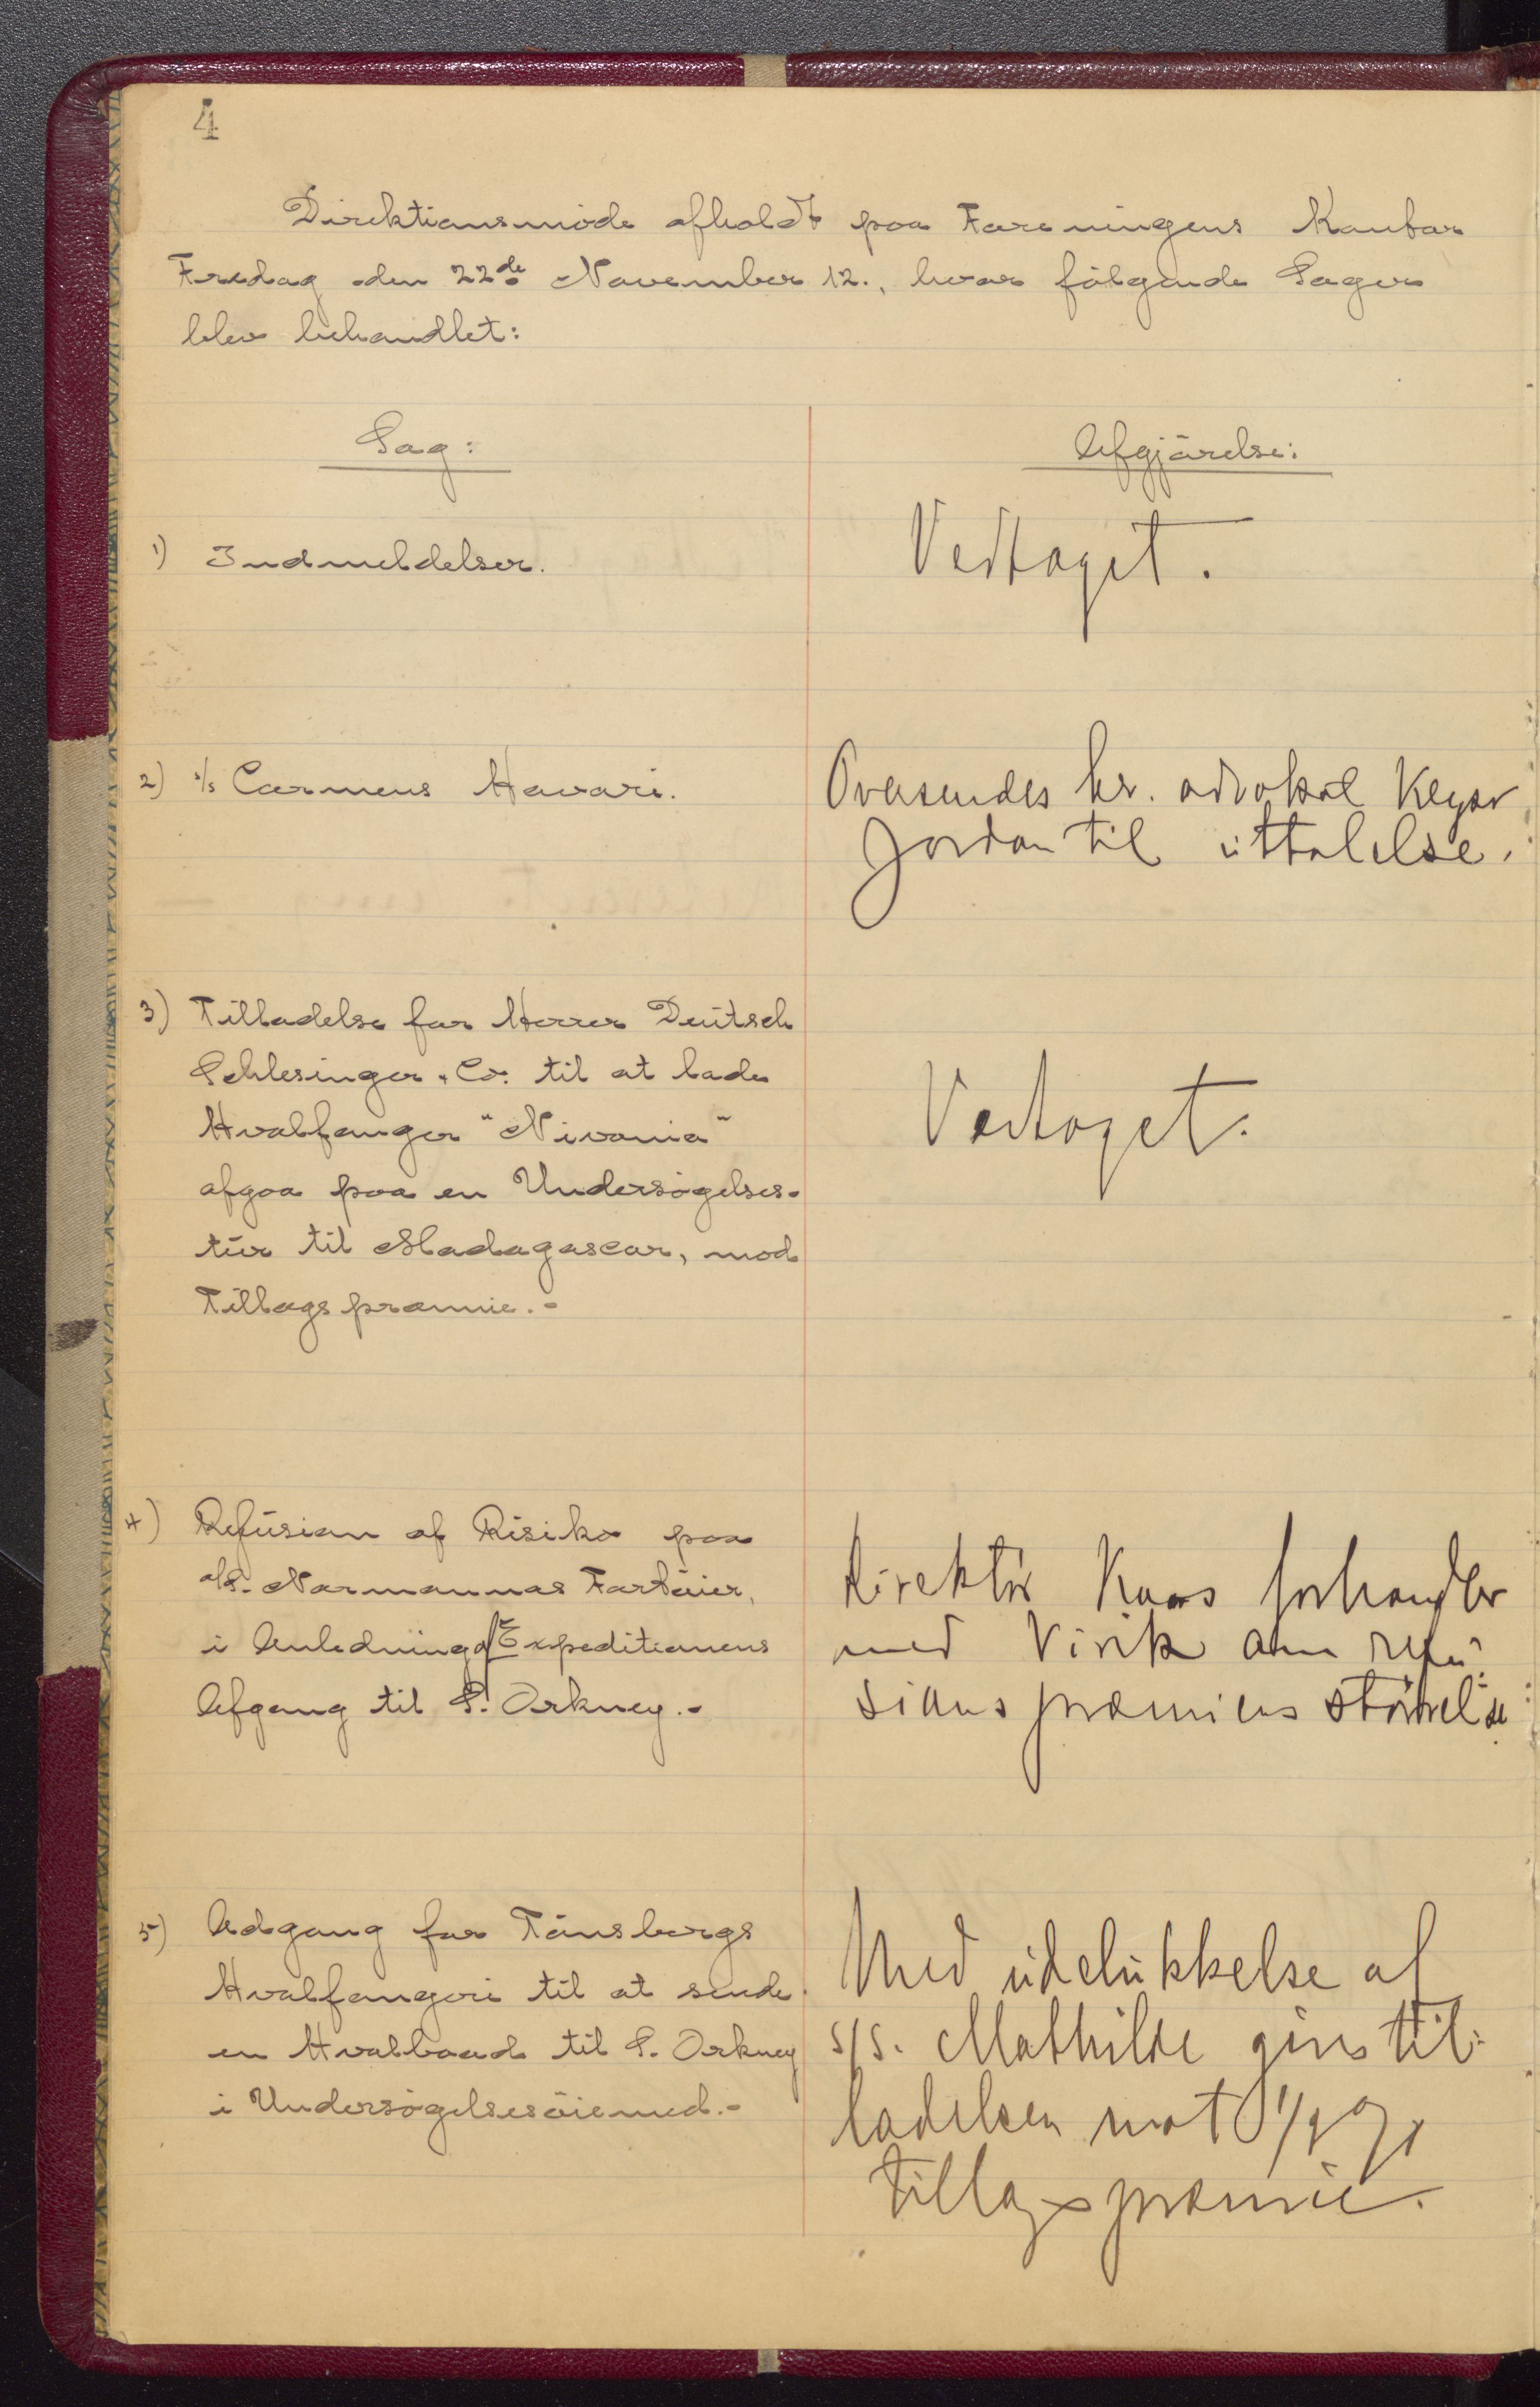 4
Direktionsmöde afholdt paa Foreningens Kontor
Fredag den 22de November 12., hvor følgende Sager
blev behandlet:
Sag:
Afgjörelse:
1) Indmeldelser.
Vedtaget.
2) s/s Carmens Havari.
Oversendes hr. advokat Keyser
Jordan til uttalelse.
3) Tilladelse for Herrer Deutsch
Schlesinger & Co. til at lade
Hvalfanger "Nivania"
afgaa paa en Undersøgelses-
tur til Madagascar, mod
Tillagspræmie.-
Vedtaget.
4) Refusion af Risiko paa
a/s. Normannas Fartøier,
i Anledning af Expeditionens
Afgang til S. Orkney.-
Direktör Kaas forhandler
med Virik om refu-
sions præmiens störrelse
5) Adgang for Tönsbergs
Hvalfangeri til at sende
en Hvalbaad til S. Orkney
i Undersøgelsesöiemed.-
Med udelukkelse af
s/s. Mathilde givs til-
ladelsen mot 1/4 %
tillagspræmie.